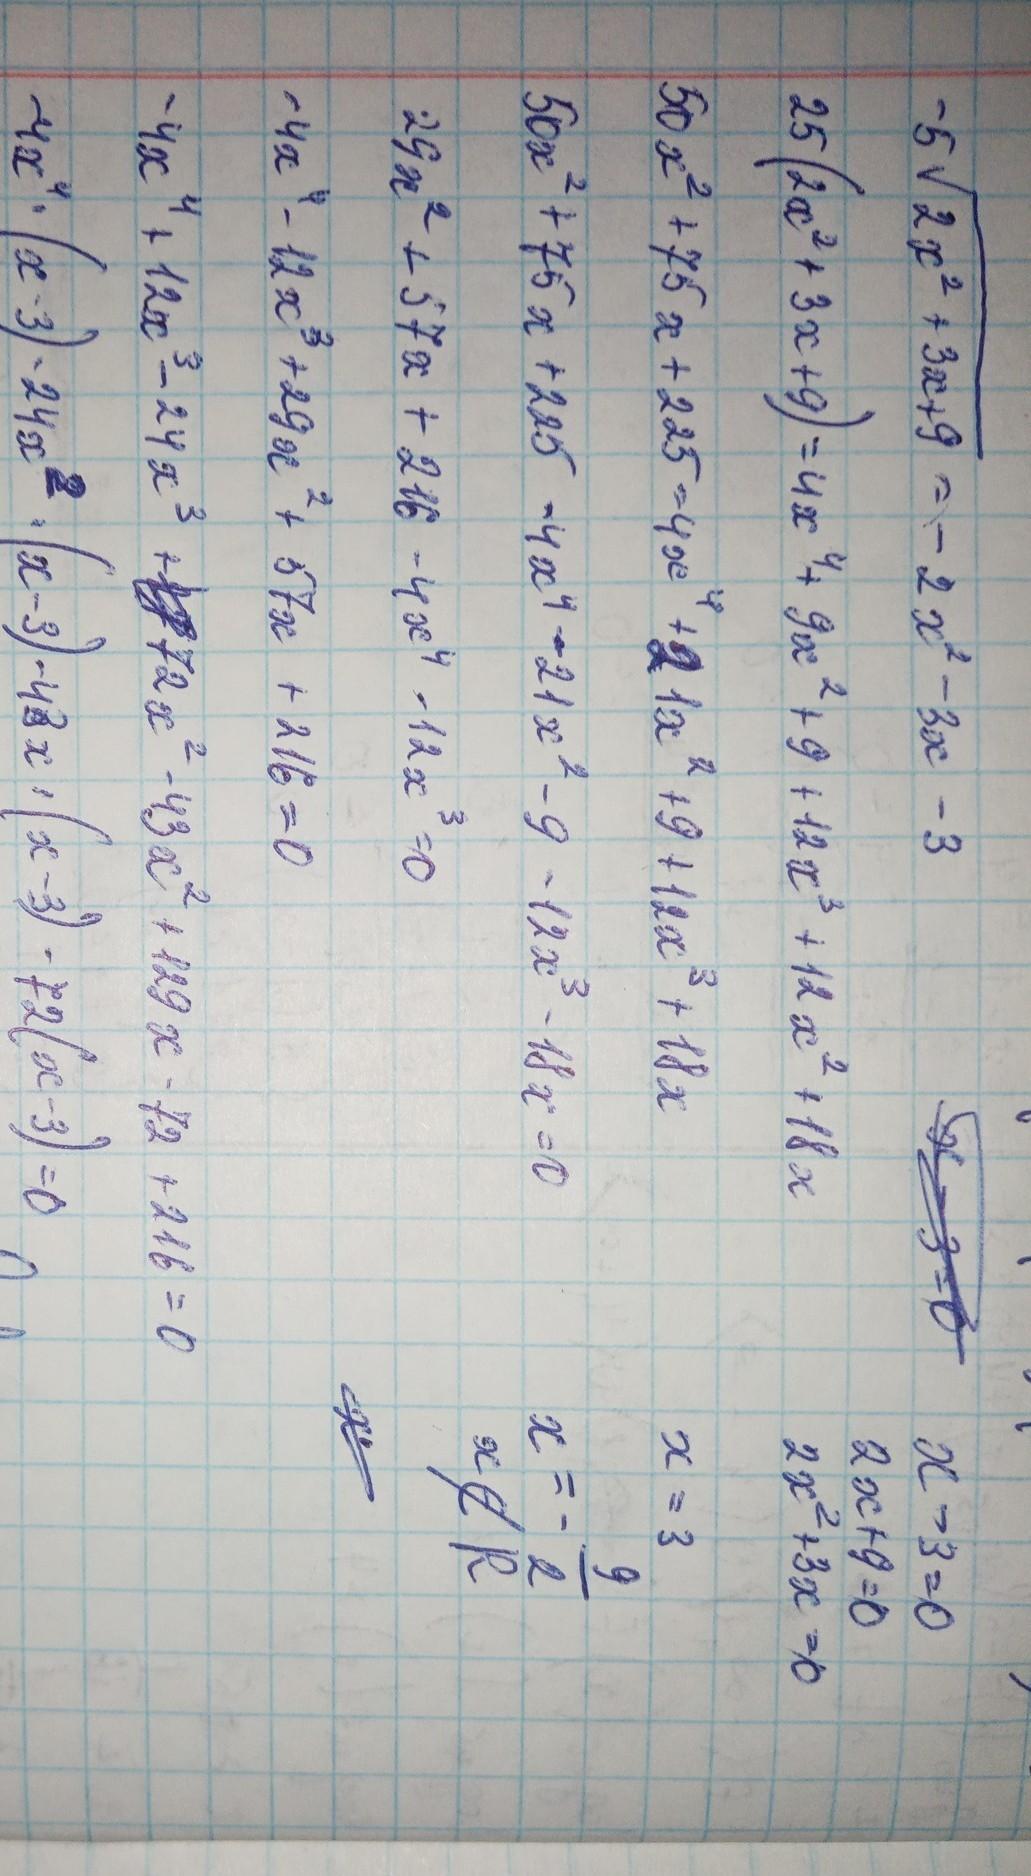 -5√2x²+3x+9 = -2x²-3x-3
25(2x²+3x+9)=4x⁴+9x²+9+12x³+12x²+18x
50x²+75x+225=4x⁴+21x²+9+12x³+18x
50x²+75x+225-4x⁴-21x²-9-12x³-18x=0
29x²+57x+216-4x⁴-12x³=0
-4x⁴-12x³+29x²+57x+216=0
-4x⁴+12x³-24x³+72x²-43x²+129x-72+216=0
-4x⁴·(x-3)-24x²·(x-3)-43x·(x-3)-72(x-3)=0
x-3=0
x-3=0
2x+9=0
2x²+3x=0
x=3
x=-9/2
x∉R